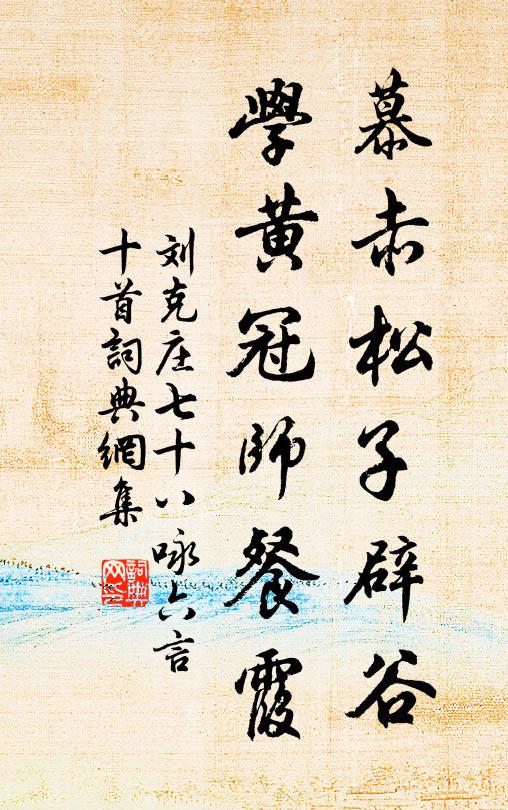 慕赤松子辟谷
學黄冠師餐霞
刘克庄七十八咏六言
十首詞典網集